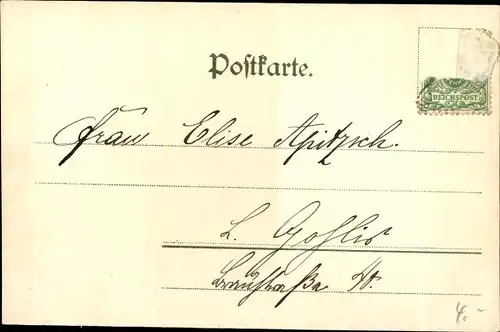 Postkarte.
REICHSPOST
Frau Elise Apitzsch.
L. Gohlis
4.-